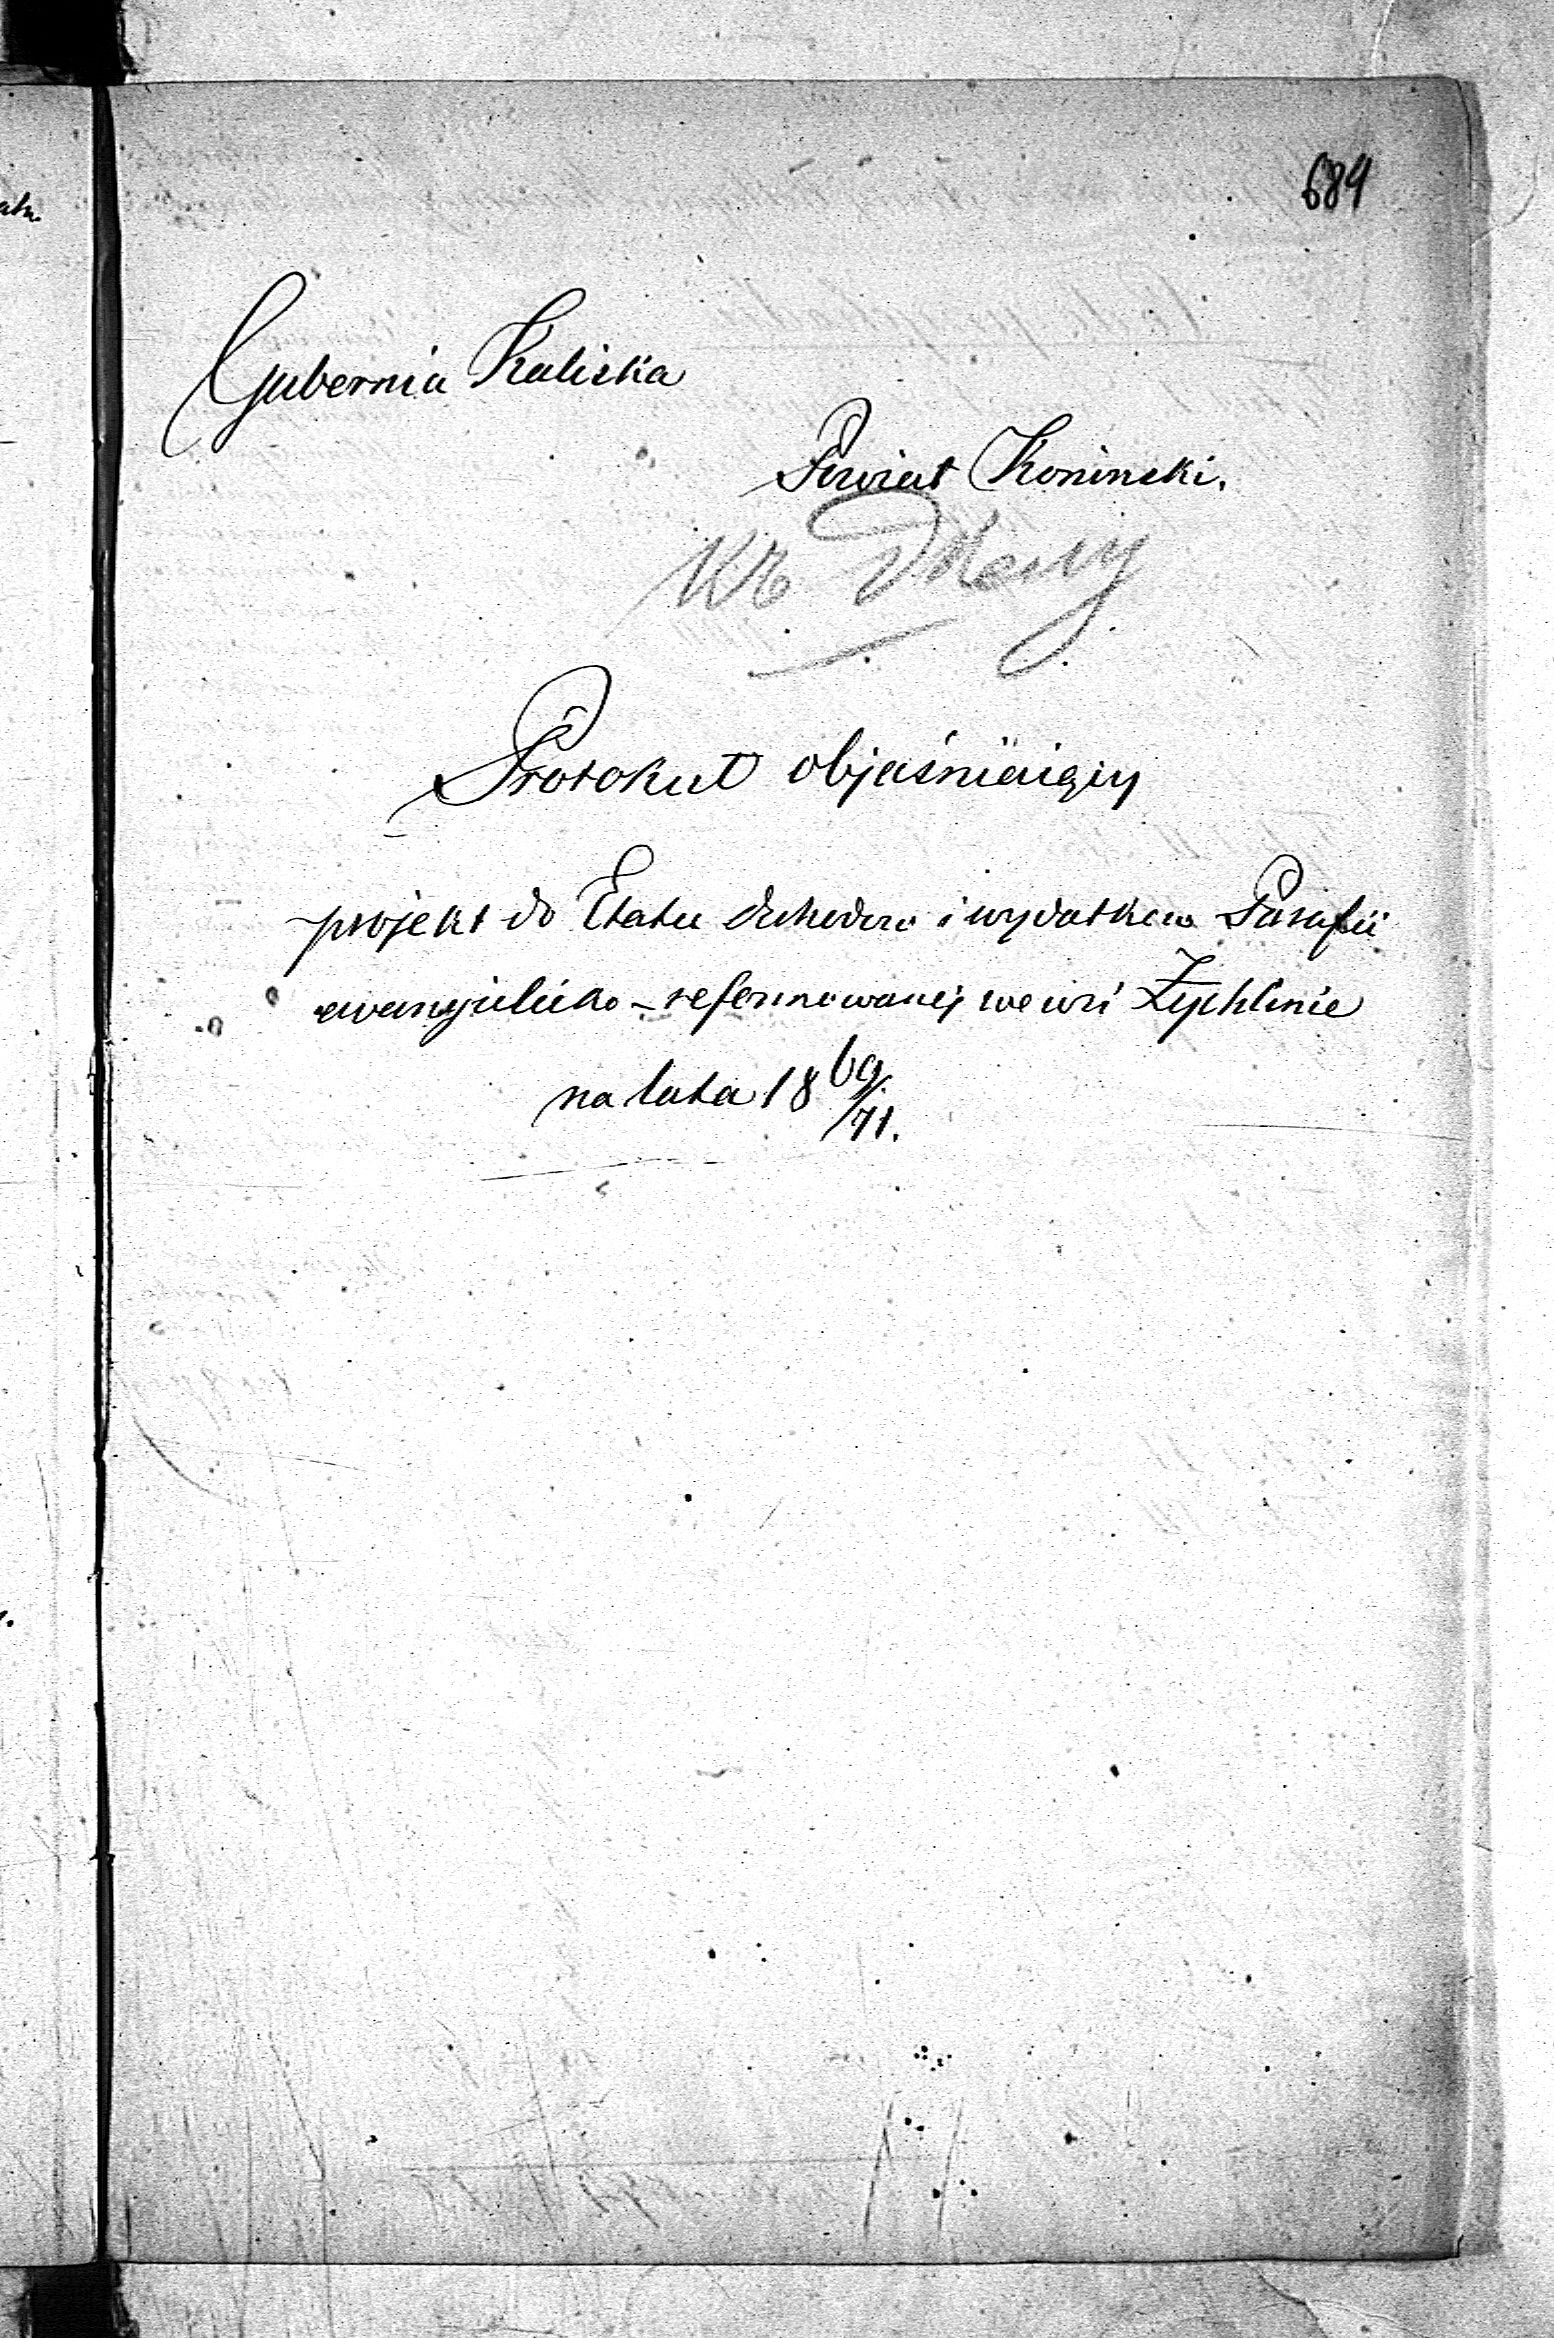 689
Gubernia Kaliska
Powiat Koninski.
Protokuł objaśniaiący
projekt do Etatu dochodow i wydatkow Parafii
ewanjelicko-reformowanej we wsi Żychlinie
na lata 18 69/71.